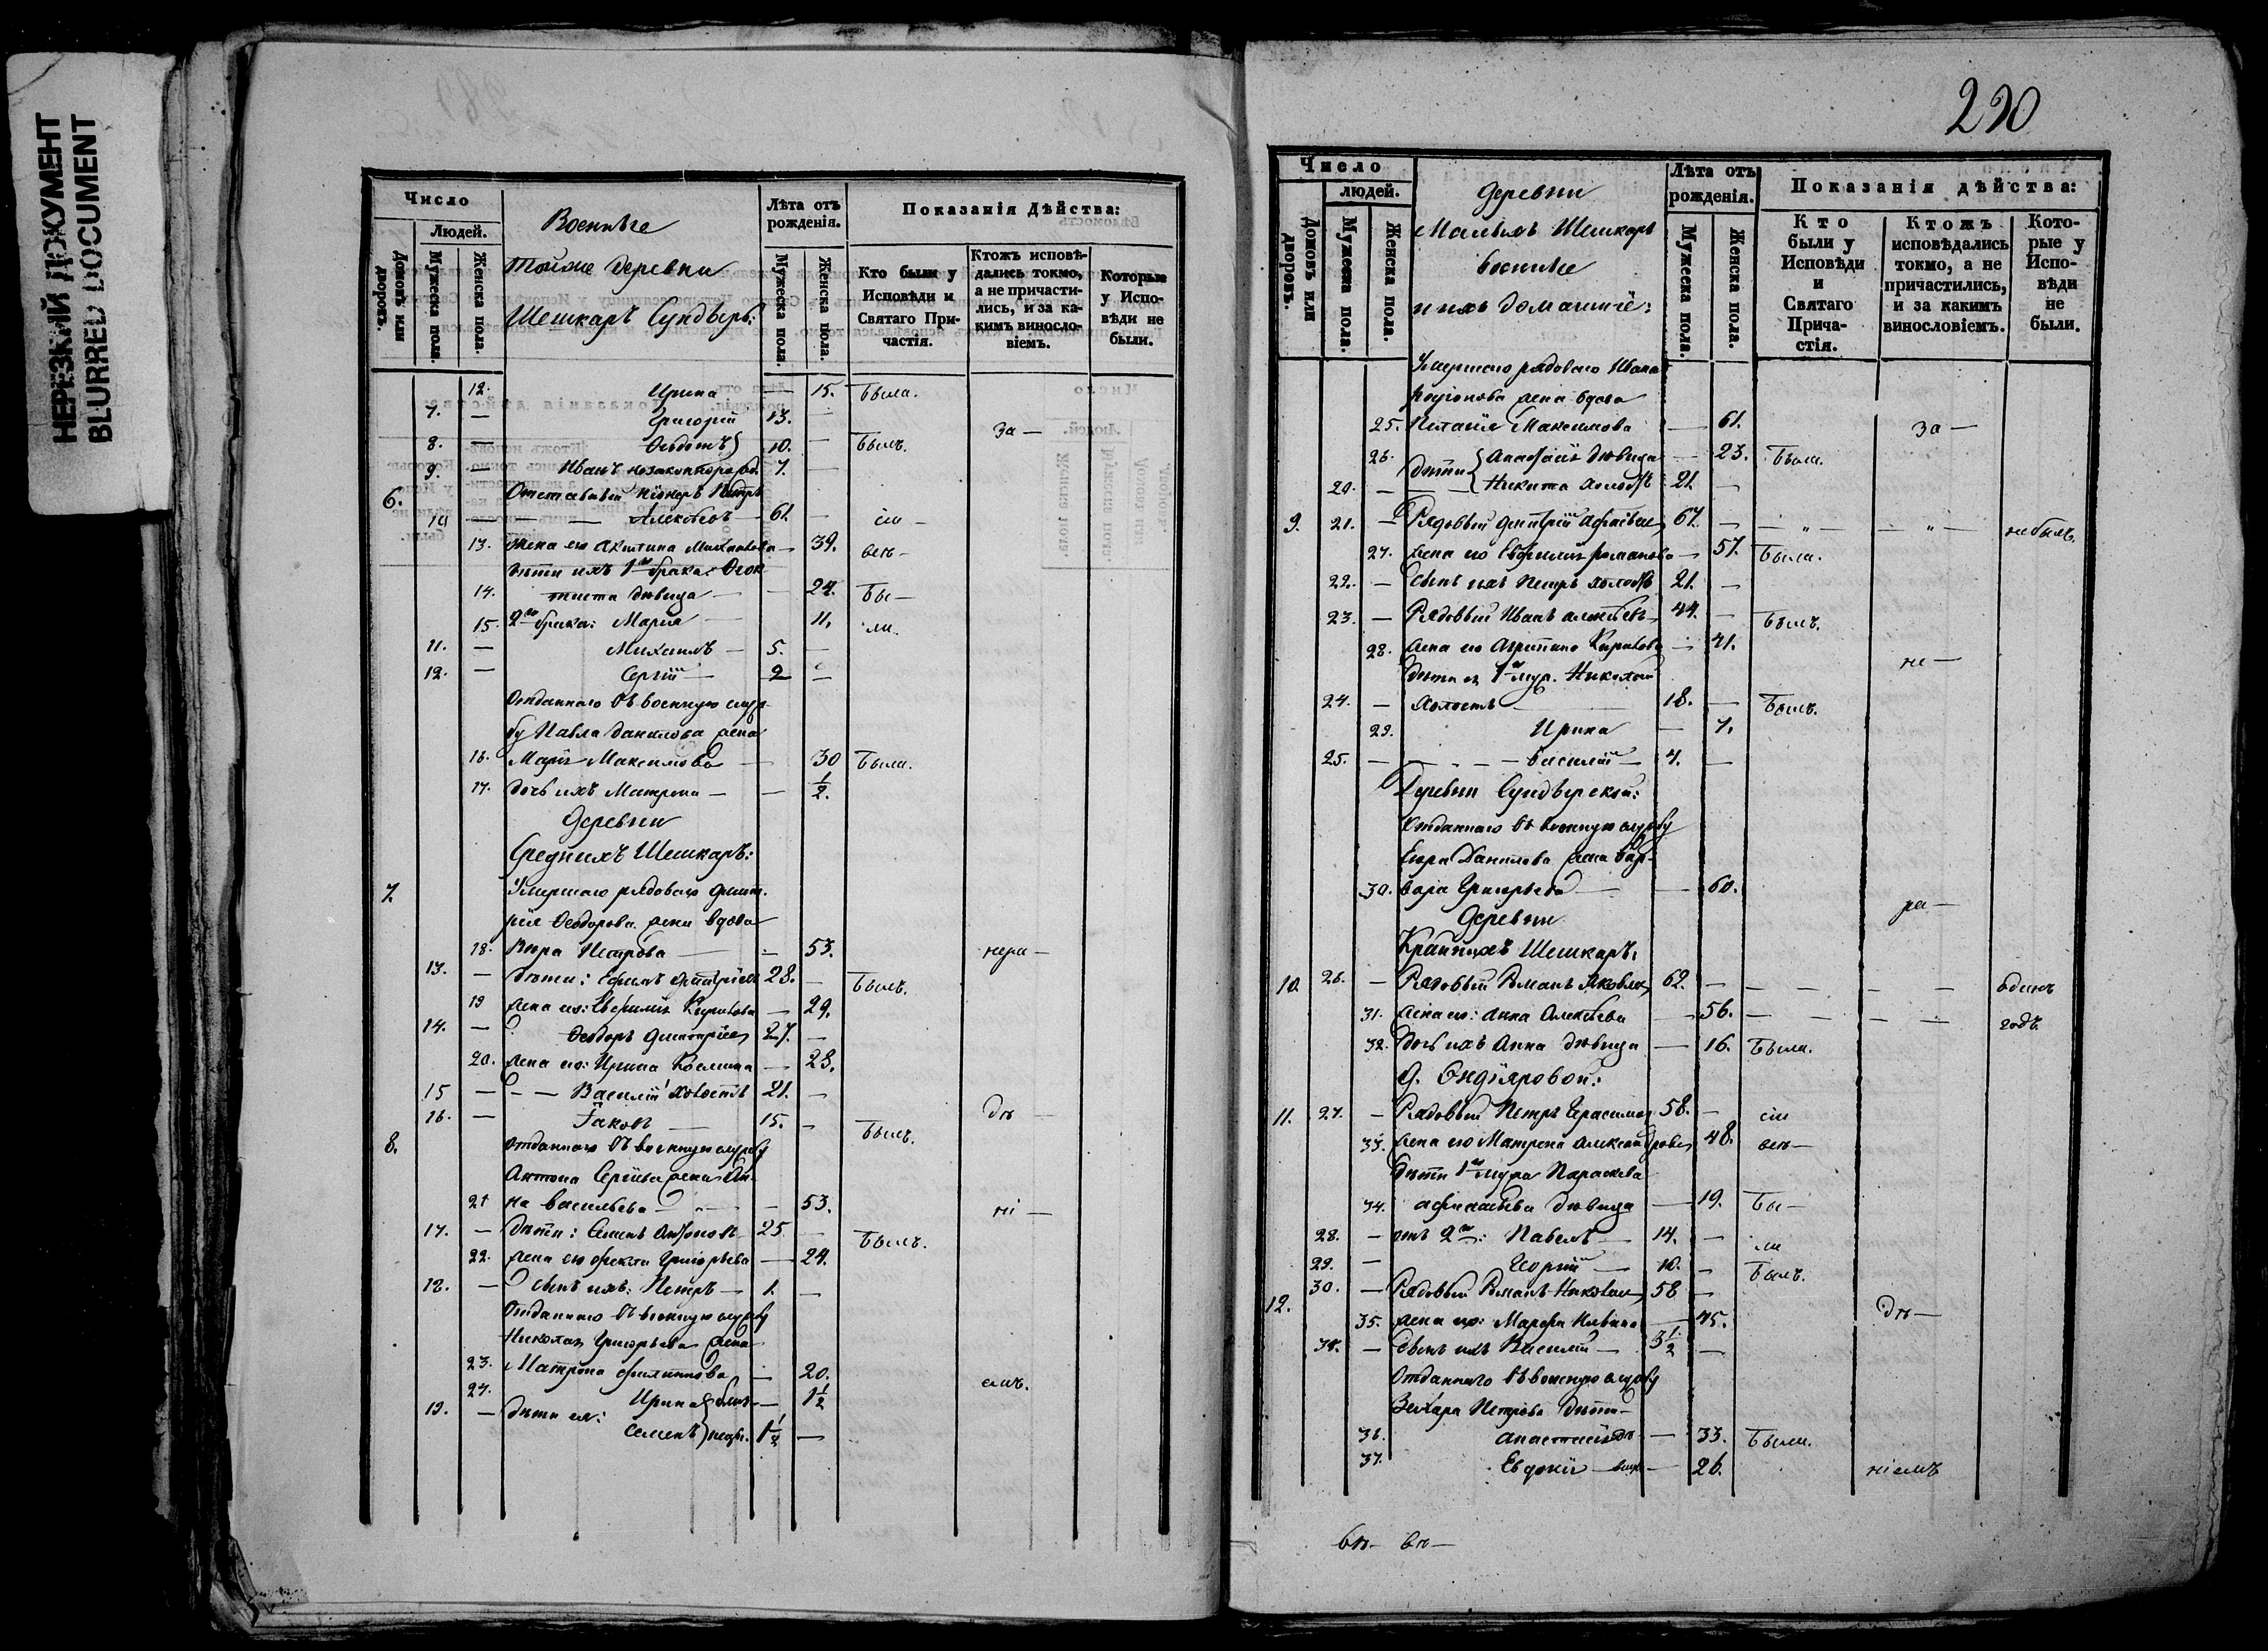 НЕРЕЗКИЙ ДОКУМЕНТ
BLURRED DOCUMENT
Число
Людей.
Домовъ или дворовъ.
Мужеска пола.
Женска пола.
Военные
Тойже деревни
Шешкаръ Сундырь:
Лѣта отъ рожденія.
Мужеска пола.
Женска пола.
Показанія Дѣйства:
Кто были у Исповѣди и Святаго Причастія.
Ктожъ исповѣдались токмо, а не причастились, и за какимъ винословіемъ.
Которые у Исповѣди не были.
12. Ирина — 15. Была.
7. — Григорій 13. —
за —
8. — Ѳедотъ 10. — Былъ.
9. — Иванъ незаконнорожд. 7. —
6. Отставный піонеръ Петръ
10 — Алексѣевъ 61. — сіи —
13. Жена его Акилина Михайлова — 39. всѣ —
дѣти ихъ 1го брака: Ѳеок
14. тиста дѣвица — 24. Бы —
15. 2го брака: Марія 11. ли.
11. — Михаилъ — 5. —
12. — Сергій — 2 —
Отданнаго въ военную служ
бу Павла Данилова жена
16. Марія Максимова — 30 Была.
17. дочь ихъ Матрона — — 1/2.
Деревни
Среднихъ Шешкаръ:
7. Умершаго рядоваго Димит
рія Ѳеодорова жена вдова
18. Вѣра Петрова — 53. нера —
13. — дѣти: Ефимъ Дмитріевъ 28. — Былъ.
19 жена его: Евфимія Кирилова — 29.
14. — Ѳеодоръ Димитріевъ 27. —
20. жена его: Ирина Козмина — 28.
15 — — — Василій холостъ 21. —
дѣ —
16. — Іаковъ 15. — Былъ.
8. отданнаго въ военную службу
Антона Сергіева жена Ан
21 на Васильева — — 53. ні —
17. — дѣти: Семенъ Антоновъ 25 — Былъ.
22. жена его Ѳекла Григорьева — 24.
18. — сынъ ихъ: Петръ — 1. —
Отданнаго въ военную службу
Николая Григорьева жена
23. Матрона Филиппова — 20. емъ.
24. Ирина близ — 1 1/2
19. — дѣти ея:
Семенъ нецы. 1 1/2 —
290
Число
людей.
Домовъ или дворовъ.
Мужеска пола.
Женска пола.
Деревни
Малыхъ Шешкаръ
военные
и ихъ домашніе:
Лѣта отъ рожденія.
Мужеска пола.
Женска пола.
Показанія дѣйства:
Кто были у Исповѣди и Святаго Причастія.
Ктожъ исповѣдались токмо, а не причастились, и за какимъ винословіемъ.
Которые у Исповѣди не были.
Умершаго рядоваго Ивана
жена вдова
25. Пелагія Максимова — 61. за —
26. дѣвица — 23. Была.
дѣти
20. — Никита холостъ 21 —
9. 21. — Рядовый Дмитрій 67. — — " — — " — не былъ.
27. жена его Евфимія Романова — 57. Была.
22. — Сынъ ихъ Петръ холостъ 21. —
23. — Рядовый Иванъ Алексѣевъ 44. — Былъ.
28. жена его Агрипина Кирилова — 41.
не —
дѣти ея 1го муж. Николай
24. — Холостъ 18. — Былъ.
29. Ирина — 7.
25. — — — — Василій — 4. —
Деревни Сундырской:
Отданнаго въ военную службу
Данилова жена Вар
30. вара Григорьева — — 60.
ра —
Деревни
Крайнихъ Шешкаръ:
10. 26. — Рядовый Романъ Яковлевъ 62. — — — — — одинъ
31. жена его: Анна Алексѣева — 56. — — — — годъ.
32. дочь ихъ Анна дѣвица — 16. Была.
д. Ендіяровой:
11. 27. — Рядовый Петръ Герасимовъ 58. — сіи
33. жена его Матрона Александрова 48. всѣ —
дѣти 1го мужа Параскева
34. дѣвица — 19. Бы —
28. — отъ 2го: Павелъ — 14. — ли
29. — Георгій — 10. — Былъ.
12. 30. — Рядовый Романъ Николаевъ 58 —
дѣ —
35. жена его: Марѳа — 45.
— Сынъ ихъ Василій — 3 1/2 —
Отданнаго въ военную службу
Захара Петрова дѣти —
36. Анастасія дѣ — 33. Была.
37. Евдокія — — 26. ніемъ